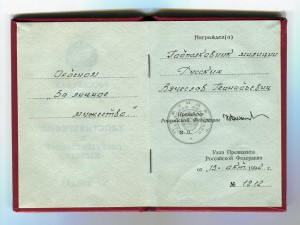 Орденом
"За личное
мужество"
Награжден(а)
Подполковник милиции
Русских
Вячеслав Геннадьевич
Президент
Российской Федерации
М.П.
Указ Президента
Российской Федерации
от 13 окт. 199
№ 1212